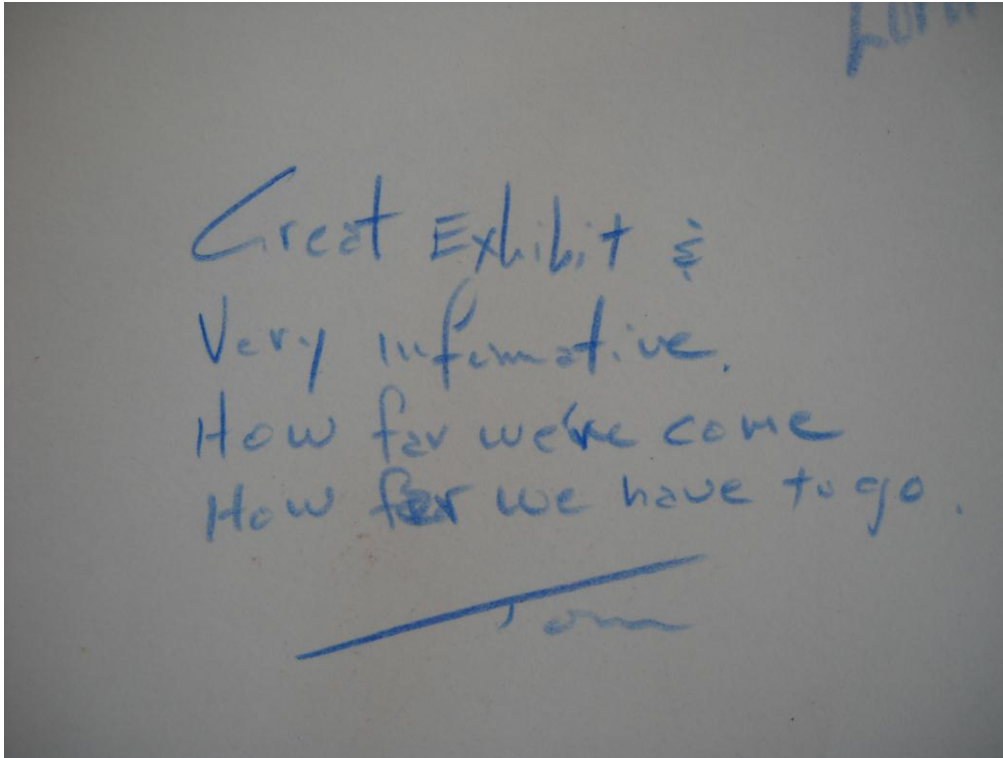 Great Exhibit &
Very informative.
How far we've come
How far we have to go.
Tom